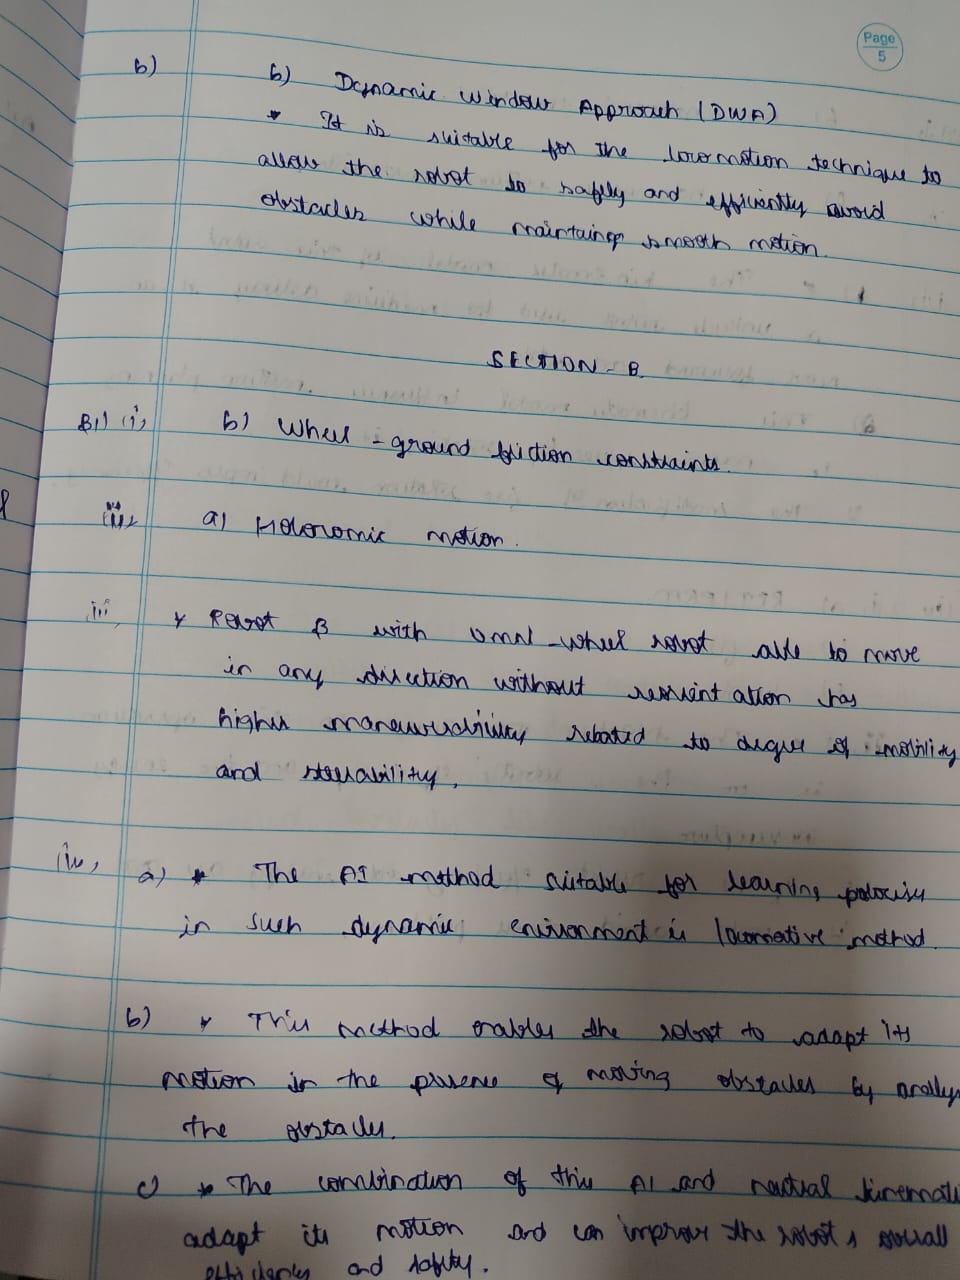 Page
5
b) b) Dynamic Window Approach (DWA)
* It is suitable for the locomotion technique to
allow the robot to safely and efficiently avoid
obstacles while maintaing smooth motion.
SECTION - B
B1) (i) b) Wheel - ground friction constraints.
(ii) a) Holonomic motion.
iii) * Robot B with omni-wheel robot able to move
in any direction without has
higher to degree of mobility
and steerability.
(iv) a) * The AI method suitable for learning
in such dynamic environment is locomotive method.
b) * This method enables the robot to adapt its
motion in the presence of moving obstacles by
the obstacles.
c) * The combination of this AI and
adapt its motion and can improve the robot's overall
and safety.